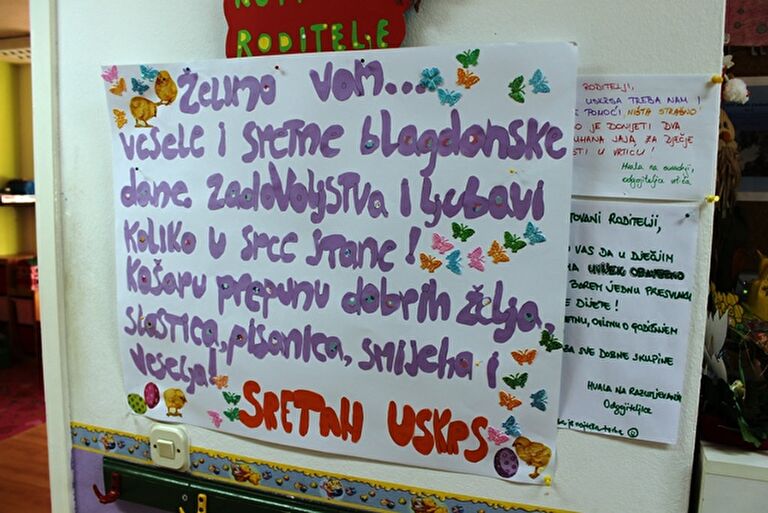 RODITELJE
ŽELIMO VAM...
vesele i sretne blagdanske
dane, zadovoljstva i ljubavi
koliko u srce stane!
Košaru prepunu dobrih želja,
slastica, pisanica, smijeha i
veselja!
SRETAN USKRS
RODITELJI,
USKRSA TREBA NAM
POMOĆI NIŠTA STRAŠNO!
JE DONIJETI DVA
KUHANA JAJA ZA DJEČJE
U VRTIĆU!
Hvala na suradnji,
odgojiteljice vrtića
RODITELJI,
VAS DA U DJEČJIM
BAREM JEDNU PRESVLAKU
DIJETE!
OVISNO O GODIŠNJEM
ZA SVE DOBNE SKUPINE
HVALA NA RAZUMIJEVANJU
Odgojiteljice